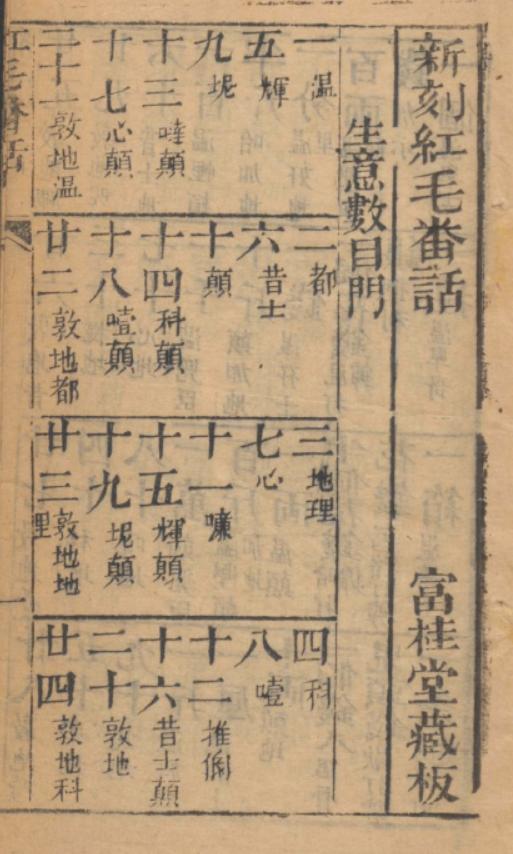 新刻紅毛番話 富桂堂藏板
生意數目門
一温 二都 三地理 四科
五輝 六昔士 七心 八噎
九坭 十顛 十一嗛 十二推
十三噠顛 十四科顛 十五輝顛 十六昔士顛
十七心顛 十八噎顛 十九坭顛 二十敦地
二十一敦地温 廿二敦地都 廿三敦地地理 廿四敦地科
紅毛番話 一